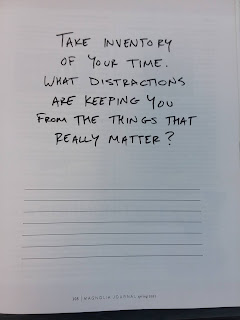 TAKE INVENTORY
OF YOUR TIME.
WHAT DISTRACTIONS
ARE KEEPING YOU
FROM THE THINGS THAT
REALLY MATTER?
MAGNOLIA JOURNAL